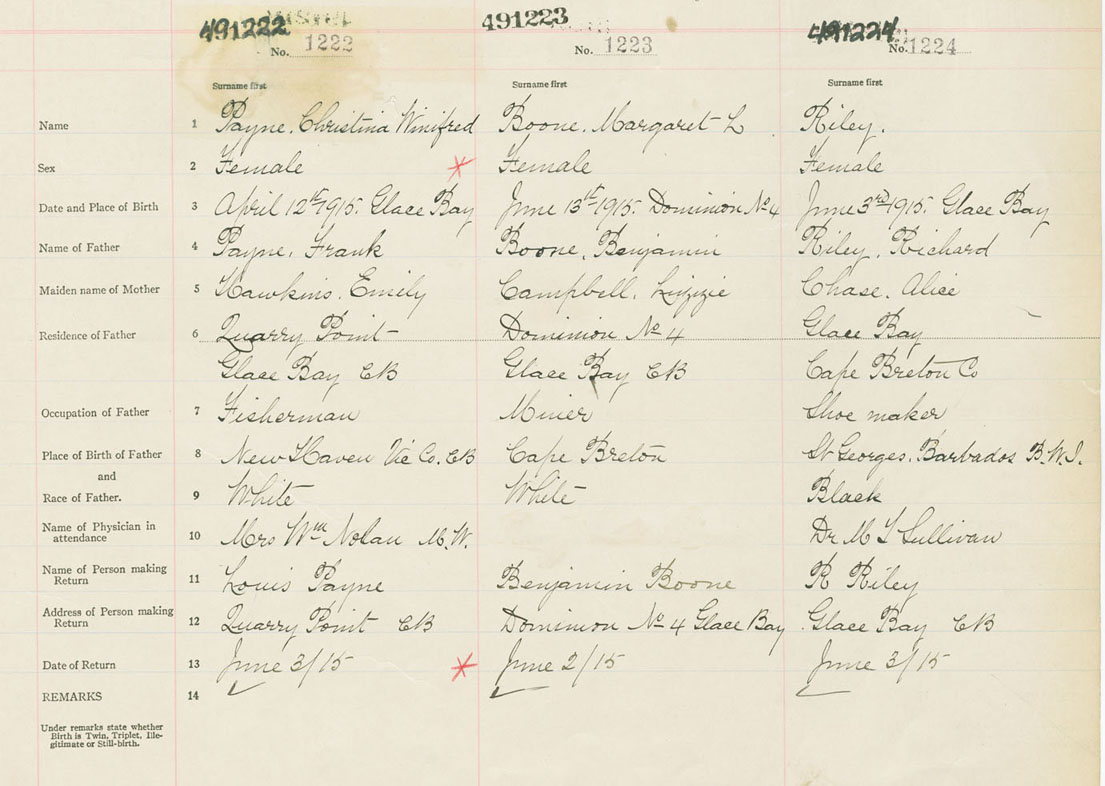 491222 491223 491224
No. 1222 No. 1223 No. 1224
Surname first Surname first Surname first
Name 1 Payne, Christina Winifred Boone, Margaret L Riley.
Sex 2 Female Female Female
Date and Place of Birth 3 April 12th 1915. Glace Bay June 13th 1915. Dominion No 4 June 3rd 1915. Glace Bay
Name of Father 4 Payne, Frank Boone, Benjamin Riley, Richard
Maiden name of Mother 5 Hawkins. Emily Campbell, Lizzie Chase, Alice
Residence of Father 6 Quarry Point Dominion No 4 Glace Bay
Glace Bay CB Glace Bay CB Cape Breton Co
Occupation of Father 7 Fisherman Miner Shoe maker
Place of Birth of Father 8 New Haven Vic Co. CB Cape Breton St Georges, Barbados B.W.I.
and
Race of Father. 9 White White Black
Name of Physician in
attendance 10 Mrs Wm Nolan M.W. Dr M T Sullivan
Name of Person making
Return 11 Louis Payne Benjamin Boone R Riley
Address of Person making
Return 12 Quarry Point CB Dominion No 4 Glace Bay Glace Bay CB
Date of Return 13 June 3/15 June 2/15 June 3/15
REMARKS 14
Under remarks state whether
Birth is Twin, Triplet, Ille-
gitimate or Still-birth.